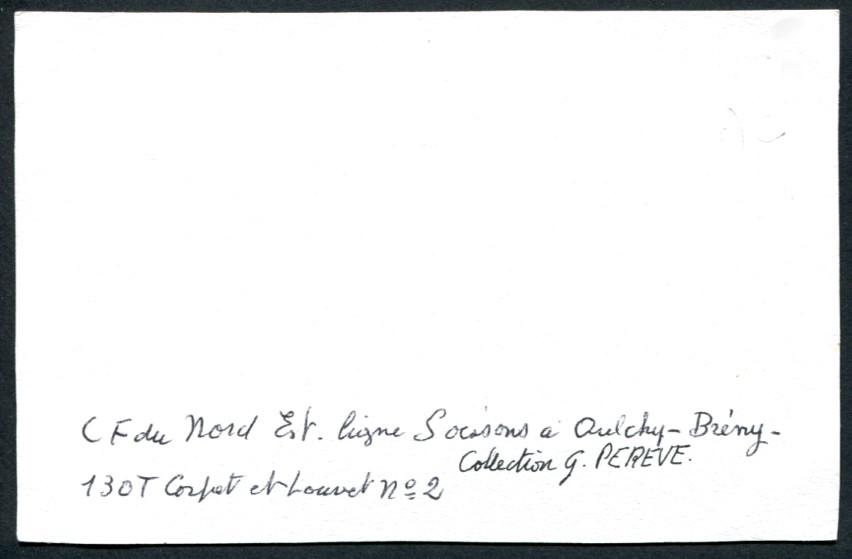 CF du Nord Est. ligne Soissons à Oulchy-Brény-
Collection G. PEREVE.
130T Corpet et Louvet Nº 2